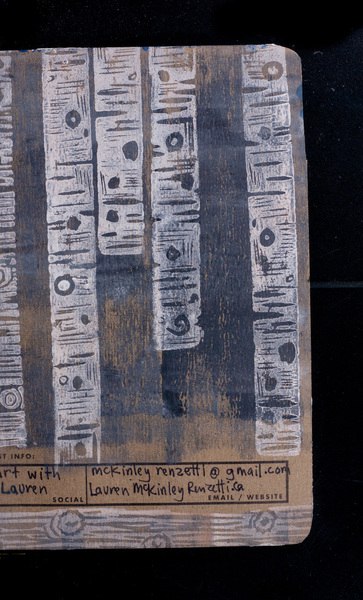 ST INFO:
art with
Lauren
SOCIAL
mckinley renzetti@gmail.com
Lauren McKinley Renzetti.ca
EMAIL / WEBSITE